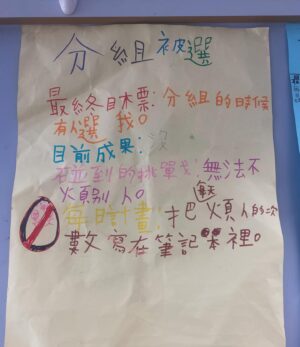 分組被選
最終目標:分組的時候
有人選 我。
目前成果:沒
到的挑單戈:無法不
煩別人。
每時計畫:把每天煩人的次
數寫在筆記本裡。